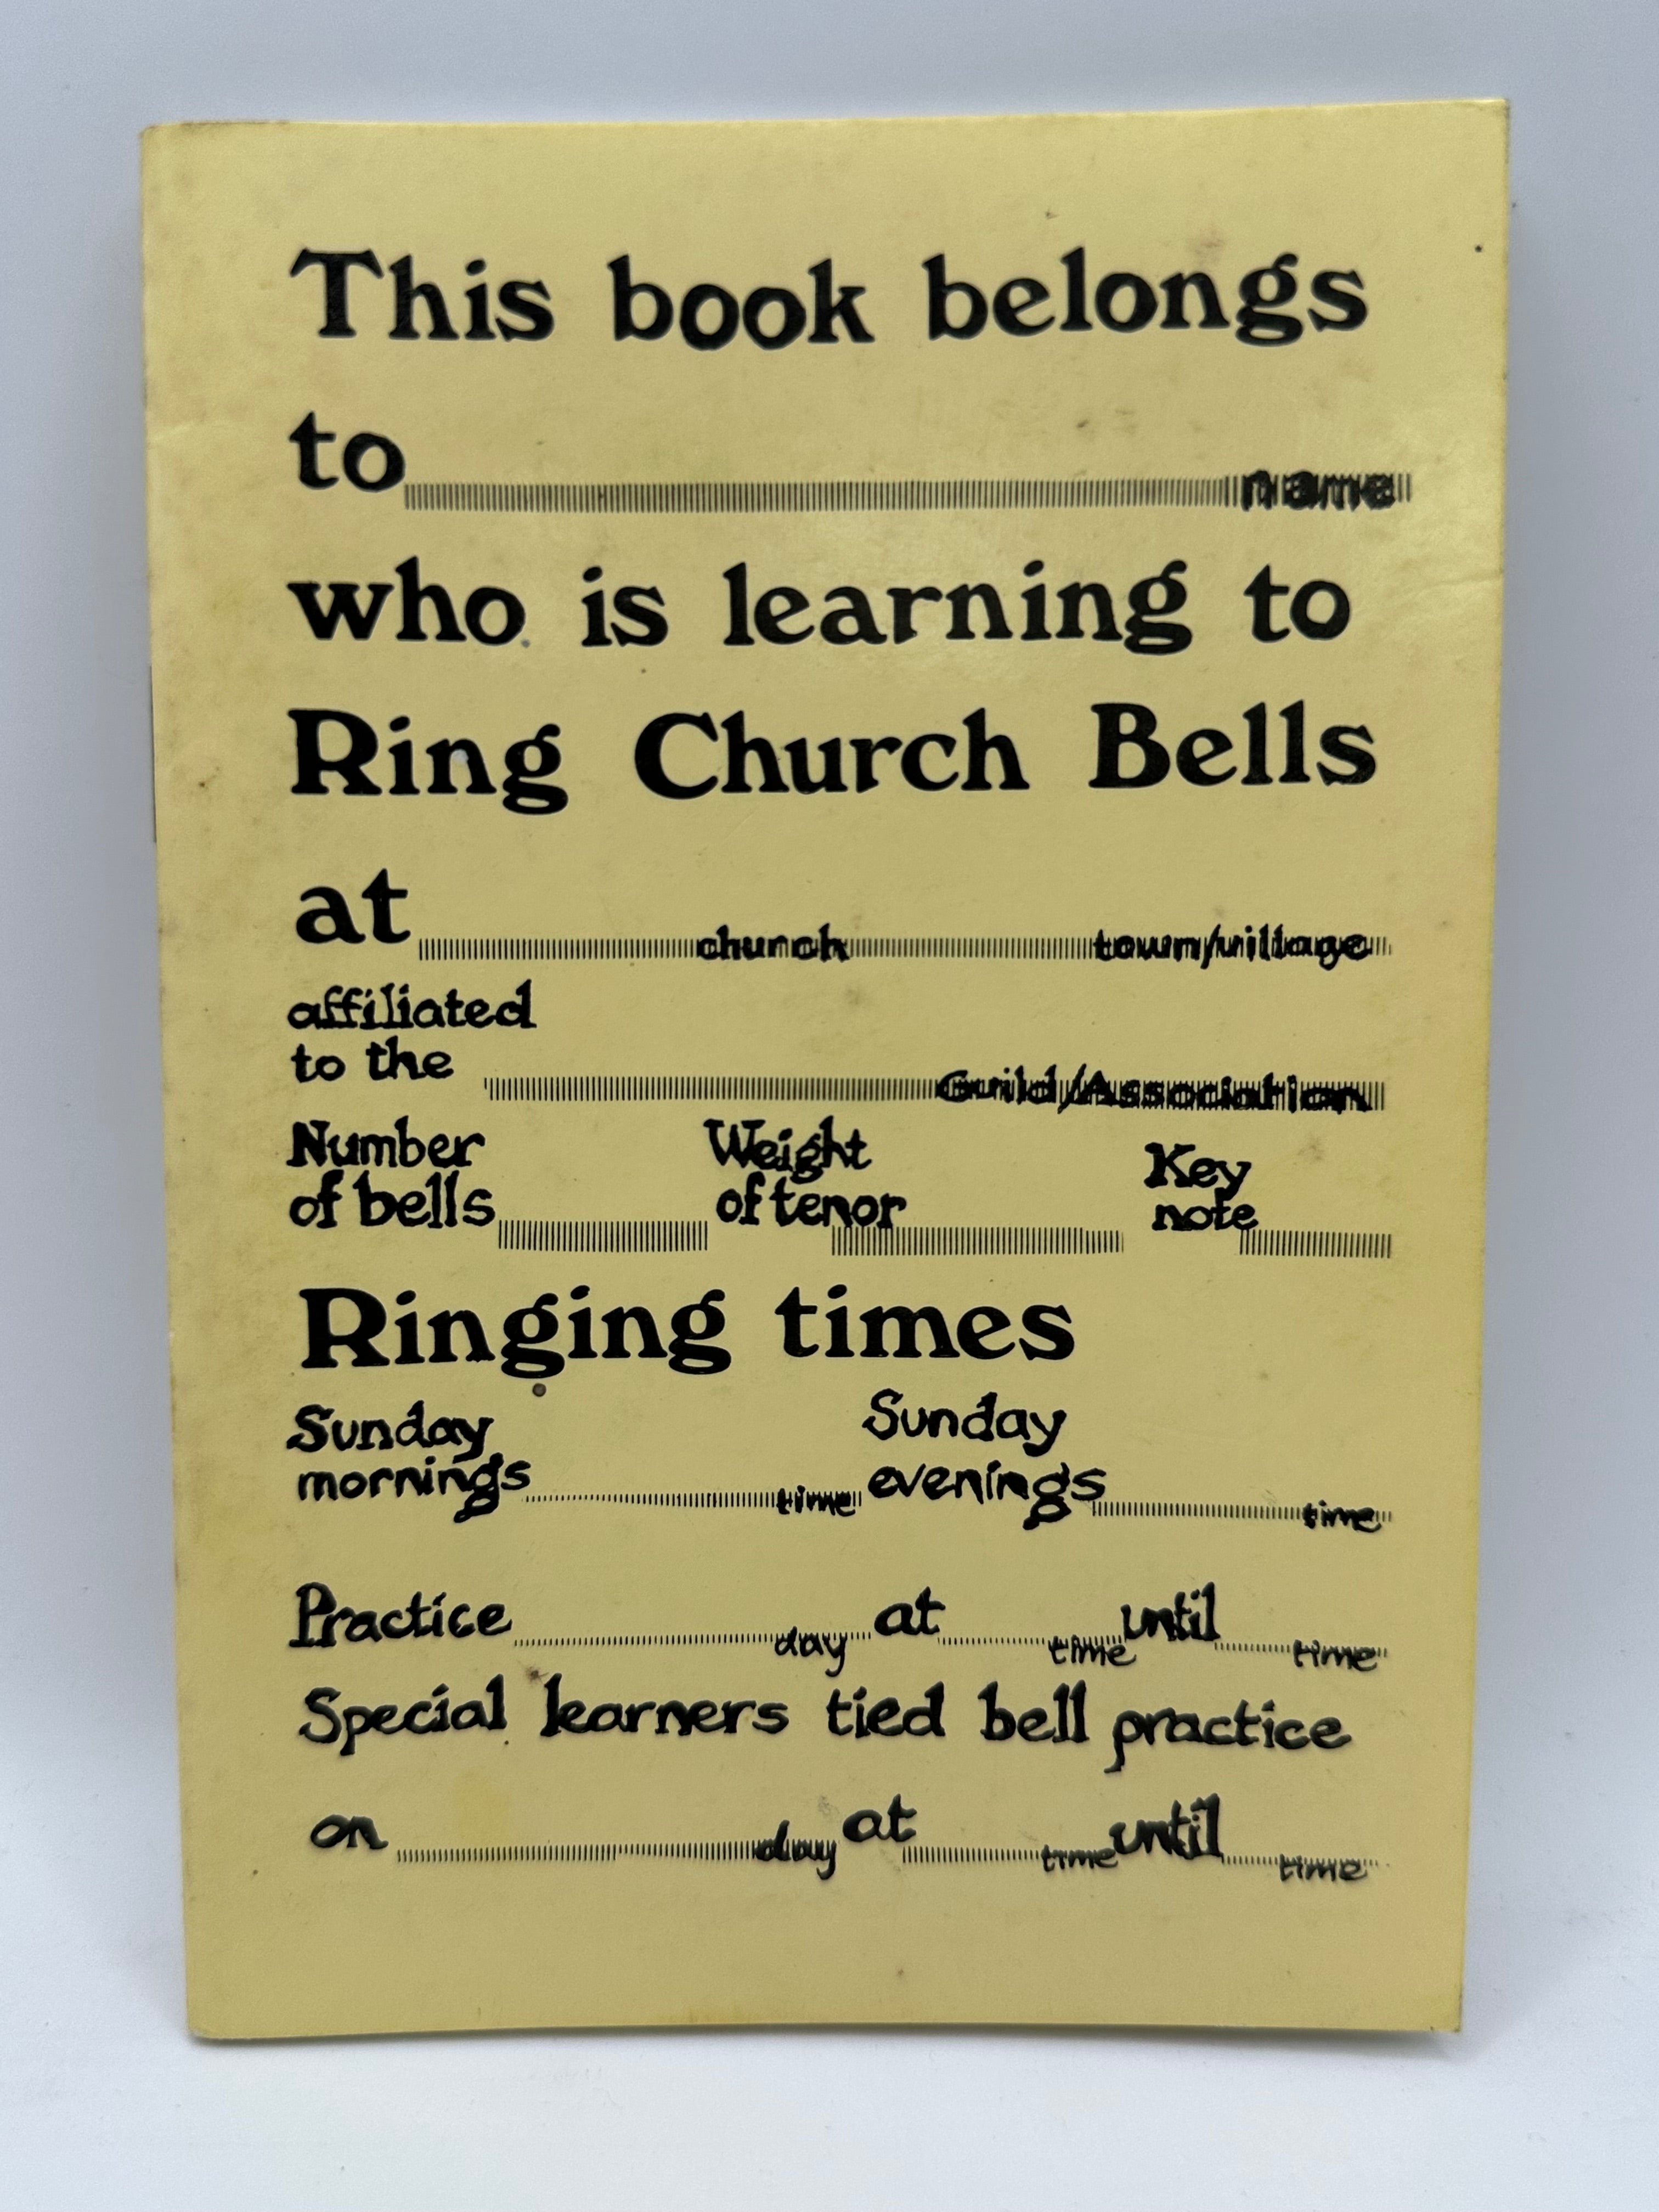 This book belongs
to name
who is learning to
Ring Church Bells
at church town/village
affiliated
to the Guild/Association
Number of bells Weight of tenor Key note
Ringing times
Sunday mornings time Sunday evenings time
Practice day at time until time
Special learners tied bell practice
on day at time until time